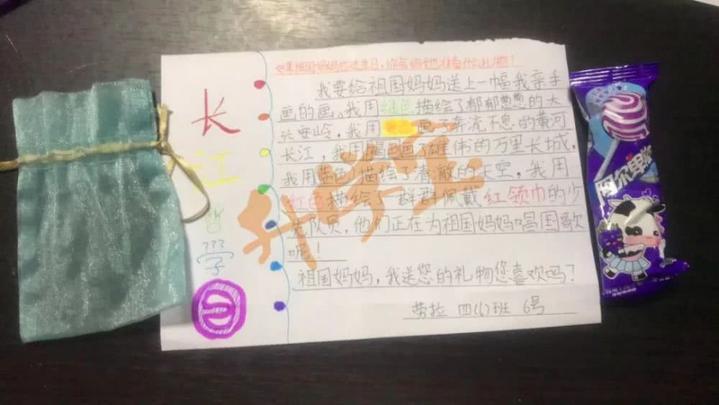 长
江
???
字
祖国妈妈
我要给祖国妈妈送上一幅我亲手
画的画。我用绿色描绘了郁郁葱葱的大
兴安岭,我用 奔流不息的黄河
长江,我用 雄伟的万里长城,
我用蓝色描绘了清澈的天空,我用
红色描绘了一群群佩戴红领巾的少
先队员,他们正在为祖国妈妈唱国歌
呢!
祖国妈妈,我送您的礼物您喜欢吗?
四(6)班 6号
阿尔卑斯